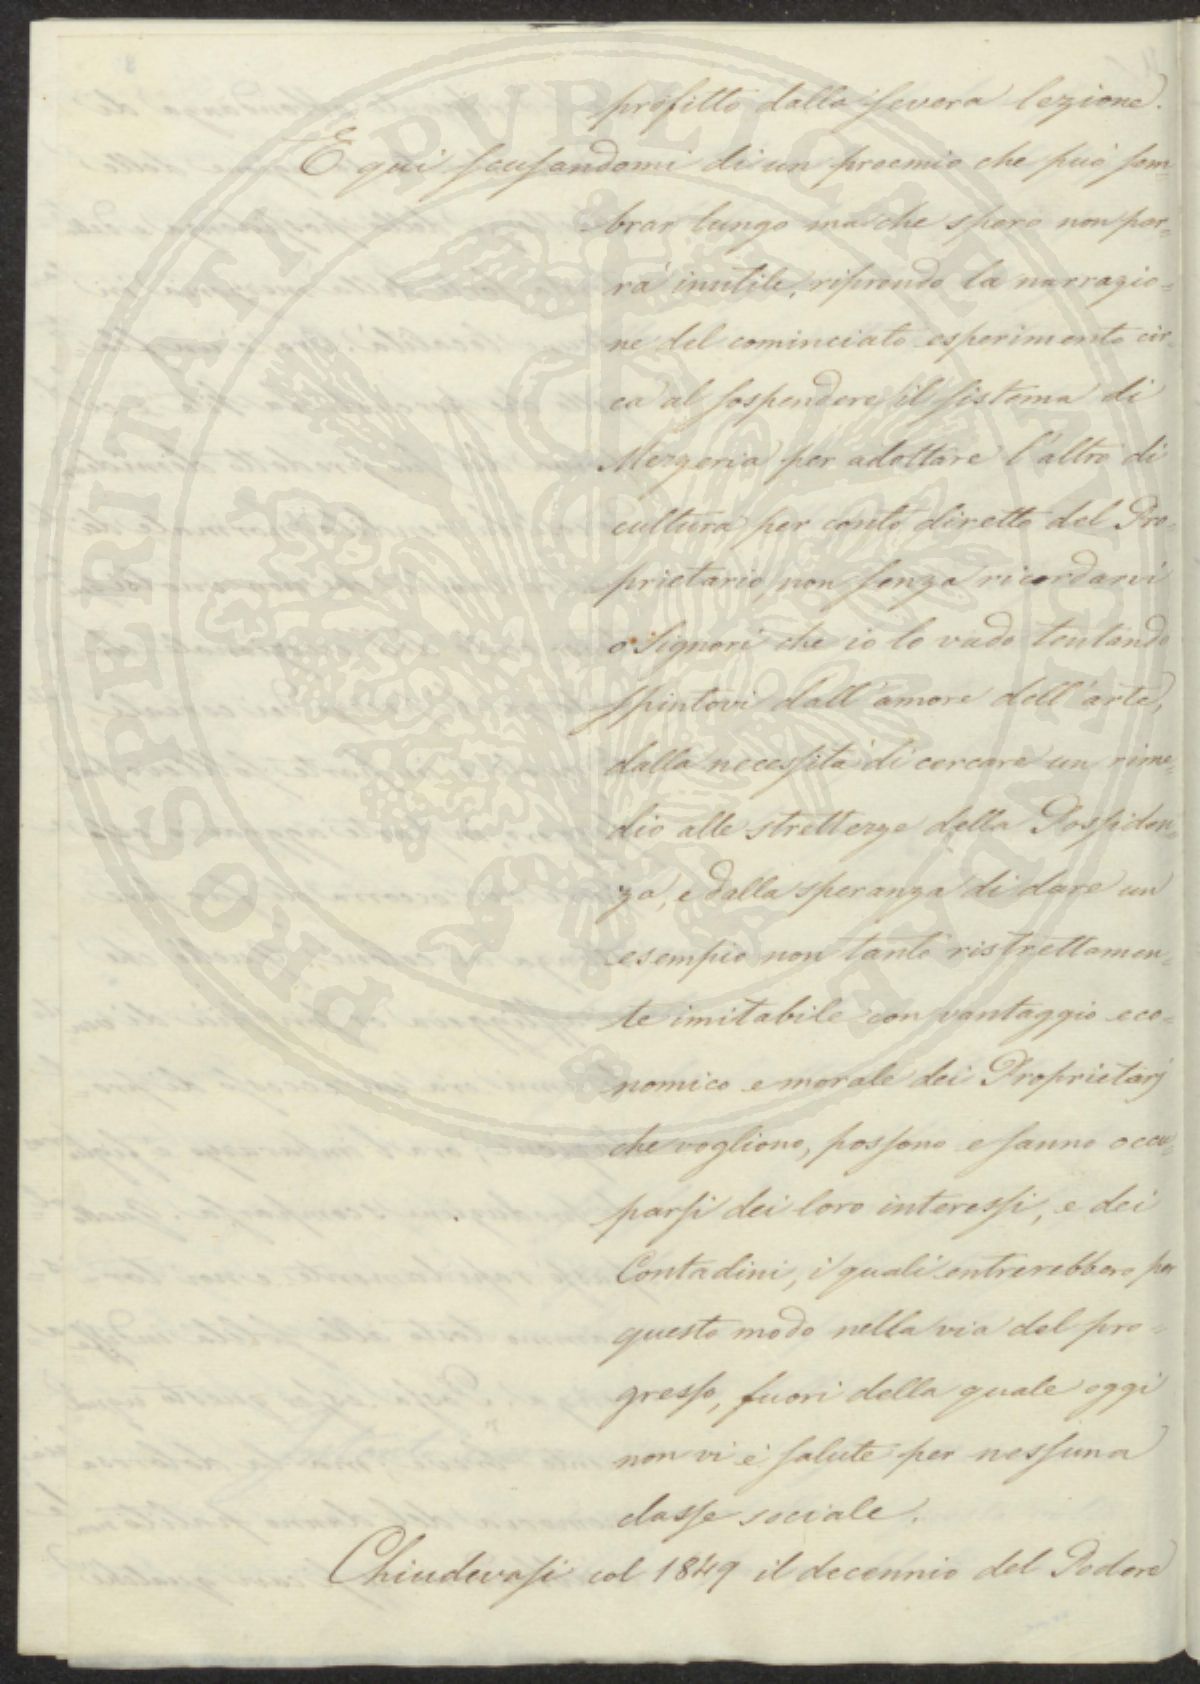 profitto dalla severa lezione.
E qui scusandomi di un proemio che può sem=
brar lungo ma che spero non par=
rà inutile, riprendo la narrazio=
ne del cominciato esperimento cir=
ca al sospendere il sistema di
Mezzeria per adottare l'altro di
cultura per conto diretto del Pro=
prietario, non senza ricordarvi
o Signori che io lo vado tentando
spintovi dall'amore dell'arte,
dalla necessità di cercare un rime=
dio alle strettezze della Possiden=
za, e dalla speranza di dare un
esempio non tanto ristrettamen=
te imitabile con vantaggio eco=
nomico e morale dei Proprietarj
che vogliono, possono e sanno occu=
parsi dei loro interessi, e dei
Contadini, i quali entrerebbero per
questo modo nella via del pro=
gresso, fuori della quale oggi
non vi è salute per nessuna
classe sociale.
Chiudevasi col 1849 il decennio del Podere
PROSPERITATI PUBLICAE AUGENDAE